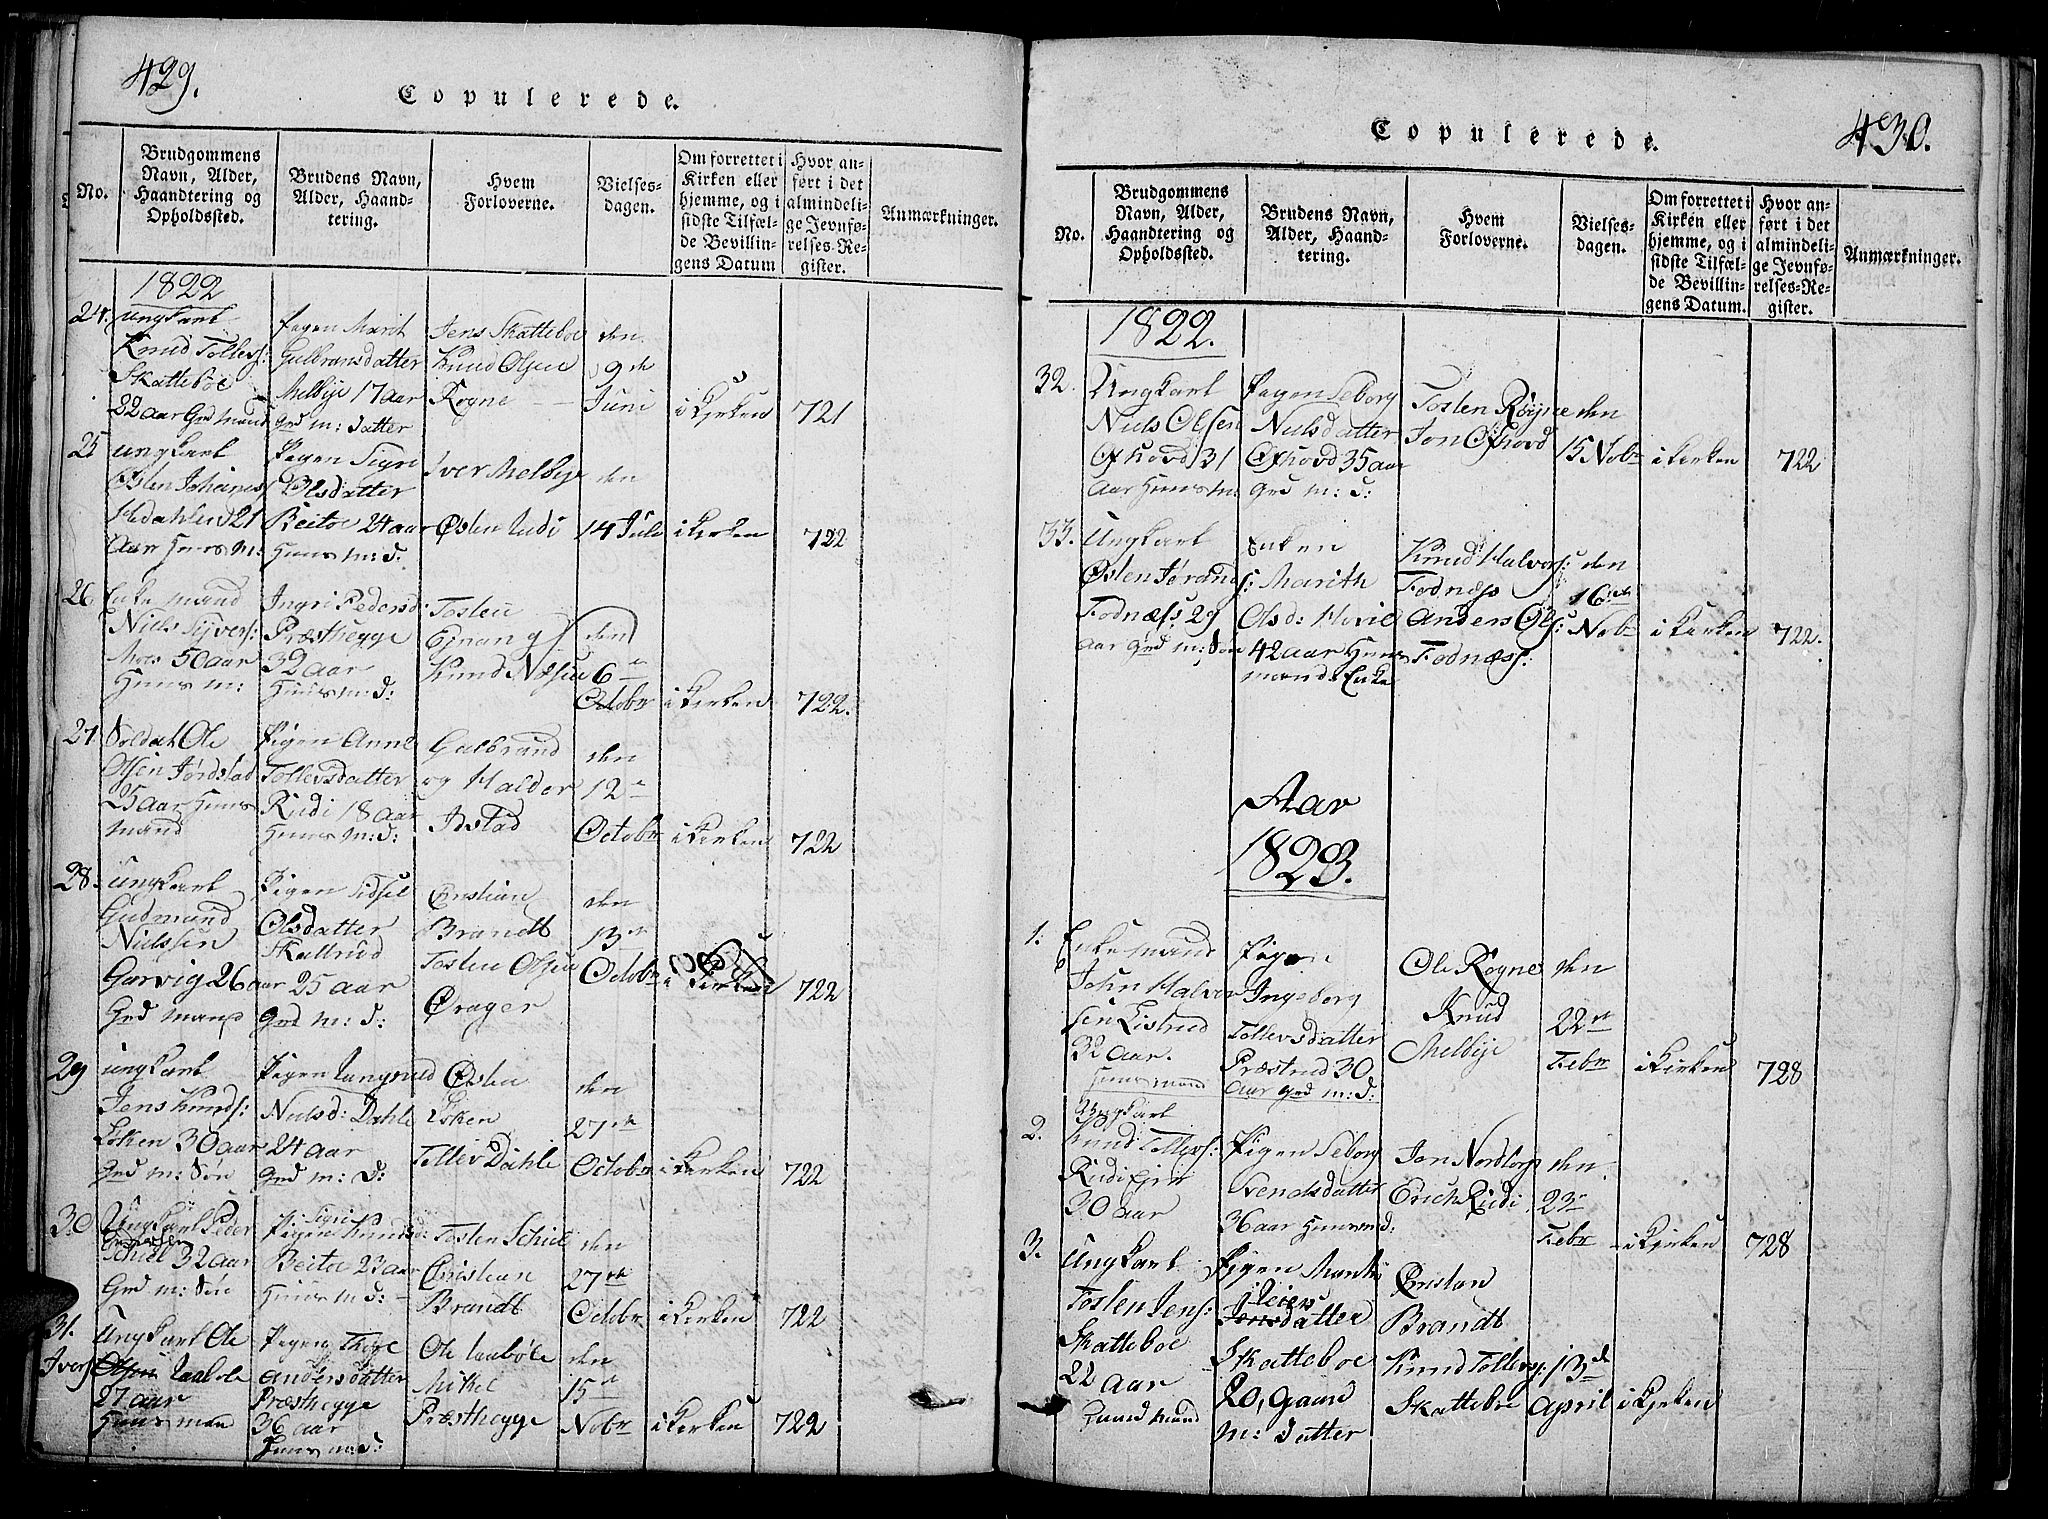 429.
Copulerede.
No.
Brudgommens
Navn, Alder,
Haandtering og
Opholdssted.
Brudens Navn,
Alder, Haand-
tering.
Hvem
Forloverne.
Vielses-
dagen.
Om forrettet i
Kirken eller
hjemme, og i
sidste Tilfæl-
de Bevillin-
gens Datum
Hvor an-
ført i det
almindeli-
ge Jevnfø-
relses-Re-
gister.
Anmærkninger.
1822
24.
ungkarl
Knud Tollefs:
Skatteböe
22 aar Grd mand
Pigen Marit
Gulbransdatter
Melbÿe 17 aar
Grd m: datter
Jens Skatteboe
Knud Olsen
Rogne
den
9de
Juni
i Kirken
721
25
ungkarl
Østen Johanes
Hedahlen 21
Aar Huus m:
Pigen Sigri
Olsdatter
Beitoe 24 aar
Huus m: d:
Iver Melbye
Østen Rudi
den
14 Jule
i Kirken
722
26
Enke mand
Niels Siÿvers:
Moes 50 aar
Huus m:
Ingri Peders d:
Præsthegge
32 aar
Huus m: d:
Tosten
Knud Nelsen
den
6te
Octobr
i Kirken
722.
27
Soldat Ole
Olsen Jørdstad
25 aar Huus
mand
Pigen Anne
Tollevsdatter
Rudi 18 aar
Huus m: d:
Gulbrand
og Haldor
Jostad
den
12te
Octobr
i Kirken
722
28.
ungkarl
Gudmund
Nielssen
Garvig 26 aar
Grd mand
Pigen Sidsel
Olsdatter
Skattrud
25 aar
Grd m: d:
Christian
Brandt
Tosten Olsen
Øvager
den
13te
Octobr
i Kirken
722
29
ungkarl
Jens Knuds:
Esken 30 aar
Grd m: Søn
Pigen Langrud
Neilsd: Dahle
24 aar
Grd m: d:
Østen
Esken
Tollev Dahle
den
27de
Octobr
i Kirken
722
30
Ungkarl Peder
Schiel 32 aar
Grd m: Søn
Sigri
Pigen Knuds d:
Beitoe 23 aar
Huus m d:
Tosten Schiel
Christian
Brandt
den
27de
Octobr
i Kirken
722
31.
Ungkarl Ole
Ivers Olsen Laaböle
27 aar
Huus man
Pigen Thore
Andersdatter
Præsthegge
36 aar
Huus m: d:
Ole Laaböle
Mikel
Præsthegge
den
15de
Nobr
i Kirken
722
430.
Copulerede.
No.
Brudgommens
Navn, Alder,
Haandtering og
Opholdssted.
Brudens Navn,
Alder, Haand-
tering.
Hvem
Forloverne.
Vielses-
dagen.
Om forrettet i
Kirken eller
hjemme, og i
sidste Tilfæl-
de Bevillin-
gens Datum.
Hvor an-
ført i det
almindeli-
ge Jevnfø-
relses-Re-
gister.
Anmærkninger.
1822.
32.
Ungkarl
Niels Olsen
Ofhovd 31
Aar Huus m:
Pigen Seborg
Neilsdatter
Ofhovd 35 aar
Grd m: d:
Tosten Røÿne
Jon Ofhovd
den
15 Nobr
i Kirken
722
33.
Ungkarl
Østen Jørands:
Fodnæss 29
aar Grd m: Søn
Enken
Marith
Olsd: Hovie
42 aar Huus
mands Enke
Knud Halvors:
Fodnæss
Anders Ols:
Fodnæss:
den
16de
Nobr
i Kirken
722.
Aar
1823.
1.
Enke mand
John Halvor
sen Eistrud
32 aar.
Huus mand
Pigen
Ingeborg
Tollevsdatter
Præstrud 30
aar Grd m: d:
Ole Rogne
Knud
Melbÿe
den
22de
Febr
i Kirken
728
2.
Ungkarl
Knud Tollevs:
Rudi Eier
30 aar
Pigen Seborg
Svendsdatter
36 aar Huus m d:
Jon Nordtorp
Erich Rudi
den
23de
Febr
i Kirken
728
3.
Ungkarl
Tosten Jens:
Skatteboe
22 aar
Huus mand
Pigen Marith
Jensdatter
Skatteboe
20, Gaard
m: datter
Christan
Brandt
Knud Tollevs:
Skatteboe
13de
April
i Kirken